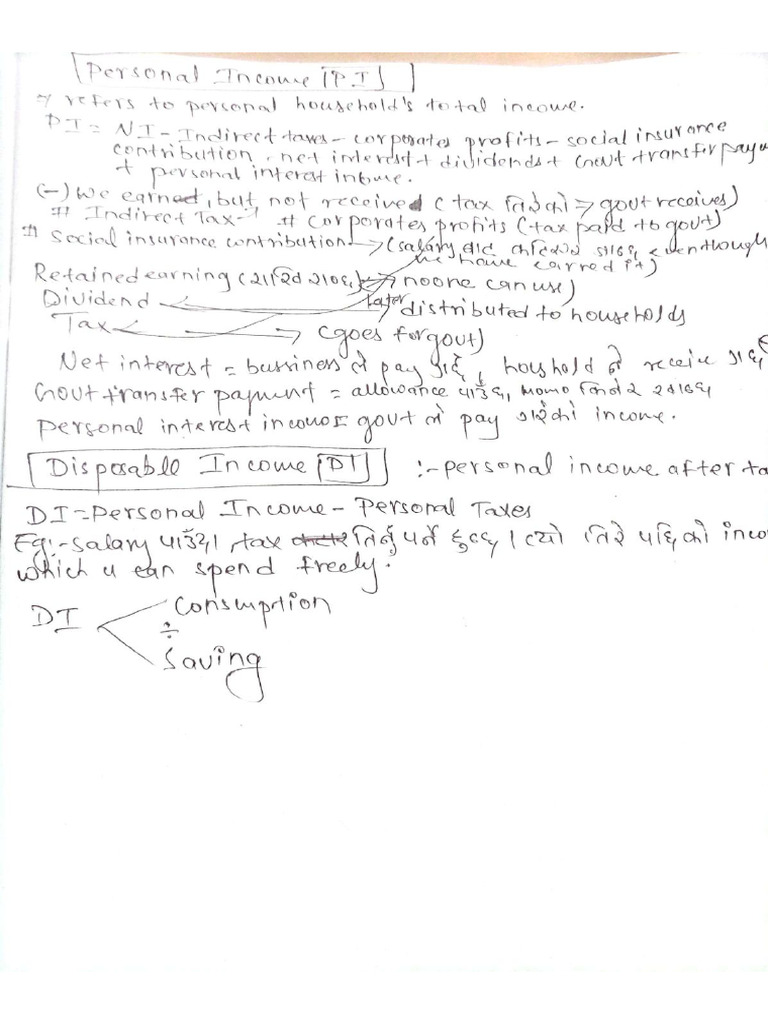 Personal Income [P.I]
→ refers to personal household's total income.
PI = NI - Indirect taxes - corporates profits - social insurance
contribution - net interest + dividends + Govt transfer payme
+ personal interest intome.
(-) We earned, but not received (tax तिरेको => govt receives)
# Indirect Tax # Corporates profits (tax paid to govt)
# Social insurance contribution → (salary बाट even though
we have earned it)
Retained earning → no one can use)
Dividend later distributed to households
Tax → (goes for govt)
Net interest = bussiness ले pay गर्दै, houshold ले receive गर्छ
Govt transfer payment = allowance पाउँछ,
personal interest income = govt ले pay गरेको income.
Disposable Income [DI] :- personal income after ta
DI = Personal Income - Personal Taxes
Eg:- salary पाउँछ। tax तिर्नु पर्ने हुन्छ। त्यो तिरे पछिको inco
which u can spend freely.
DI
Consumption
÷
Saving